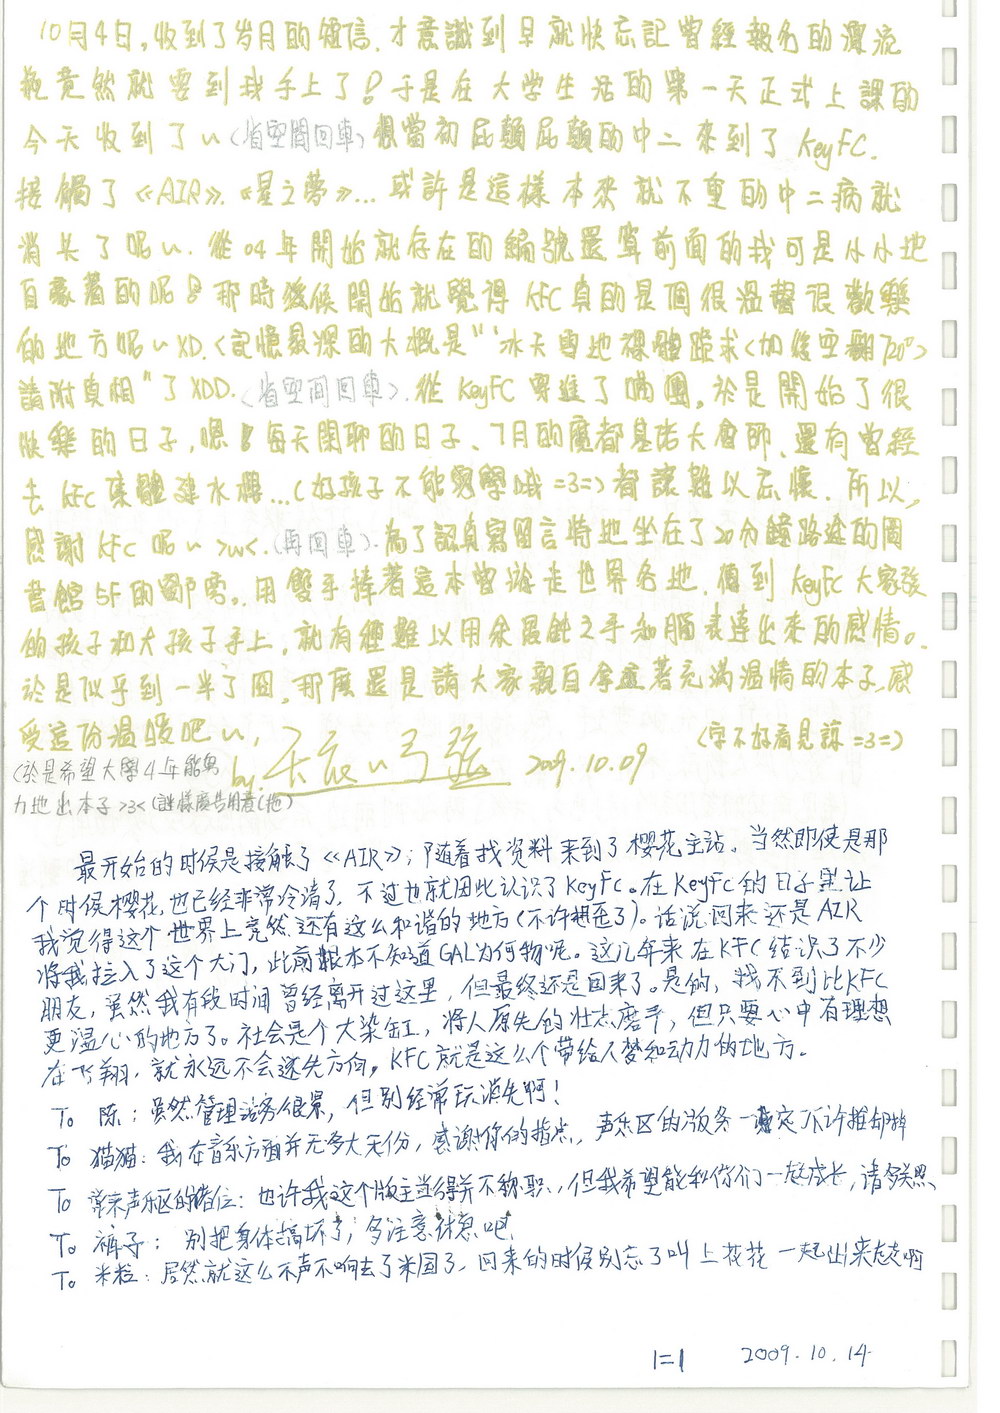 10月4日,收到了岁月的短信.才意識到早就快忘記曾經報名的漂流
瓶竟然就要到我手上了!于是在大学生活的第一天正式上課的
今天收到了~(省空間回車)想當初屁顛屁顛的中二來到了KeyFC.
接觸了《AIR》.《星之夢》...或許是這樣本來就不重的中二病就
消失了呢~.從04年開始就存在的編號還算前面的我可是小小地
自豪著的呢!那時候開始就覺得KFC真的是個很溫馨很歡樂
的地方呢~XD.(記憶最深的大概是"冰天雪地裸體跪求(加後空翻720°)
請附真相"了XDD.(省空间回車).從KeyFC穿進了團,於是開始了很
快樂的日子,嗯!每天閑聊的日子、7月的魔都基佬大會師、還有曾經
去KFC集體建水樓...(好孩子不能學哦=3=)都讓難以忘懷.所以,
感謝KFC呢~>w<.(再回車).為了認真寫留言特地坐在了20分鐘路途的圖
書館5F的.用雙手捧著這本曾游走世界各地,值到KeyFc大家
的孩子和大孩子手上,就有種難以用余之手和腦表達出來的感情。
於是似乎到一半了囧,那麼還是請大家親自拿著充滿溫情的本子,感
受這份溫暖吧~,
(字不好看見諒=3=)
(於是希望大學4年能努
力地出本子>3<(謎樣廣告用意(拖)
by.天~弓弦 2009.10.09
最开始的时候是接触了《AIR》;随着找资料来到了樱花主站。当然即使是那
个时候樱花也已经非常冷清了,不过也就因此认识了KeyFc。在KeyFc的日子里让
我觉得这个世界上竟然还有这么和谐的地方(不许想歪了)。话说回来还是AIR
将我拉入了这个大门,此前根本不知道GAL为何物呢。这几年来在KFC结识了不少
朋友,虽然我有段时间曾经离开过这里,但最终还是回来了。是的,找不到比KFC
更温心的地方了。社会是个大染缸,将人原先的壮志磨平,但只要心中有理想
在飞翔,就永远不会迷失方向,KFC就是这么个带给人梦和动力的地方。
To 陈:虽然管理站务很累,但别经常玩消失啊!
To 猫猫:我在音乐方面并无多大天份,感谢你的指点,声乐区的版务一定不许推却掉
To 常来声乐区的诸位:也许我这个版主当得并不称职,但我希望能和你们一起成长,请多关照
To 裤子:别把身体搞坏了,多注意休息吧
To 米粒:居然就这么不声不响去了米国了,回来的时候别忘了叫上花花一起出来怂怂啊
1=1 2009.10.14